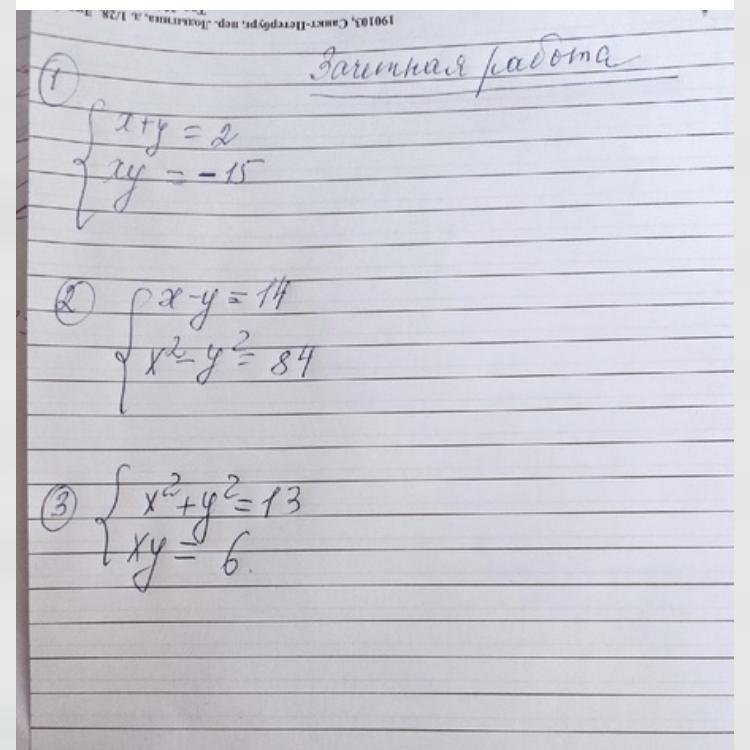 190103, Санкт-Петербург, пер. Лодыгина, д. 1/28
Зачетная работа
1
x+y = 2
xy = -15
2
x-y = 14
x²-y² = 84
3
x²+y² = 13
xy = 6.